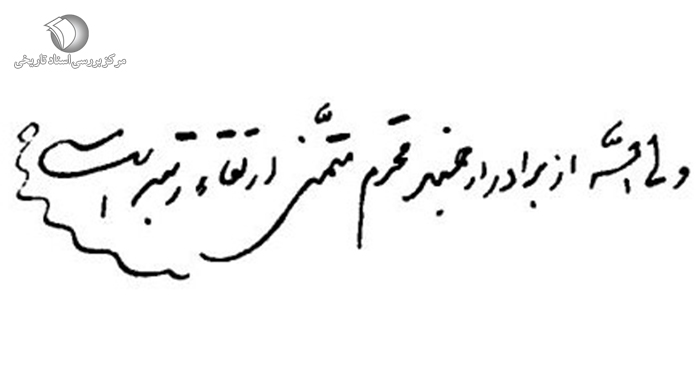 مرکز بررسی اسناد تاریخی
از برادر ارجمند محترم متمنی ارتقاء رتبه